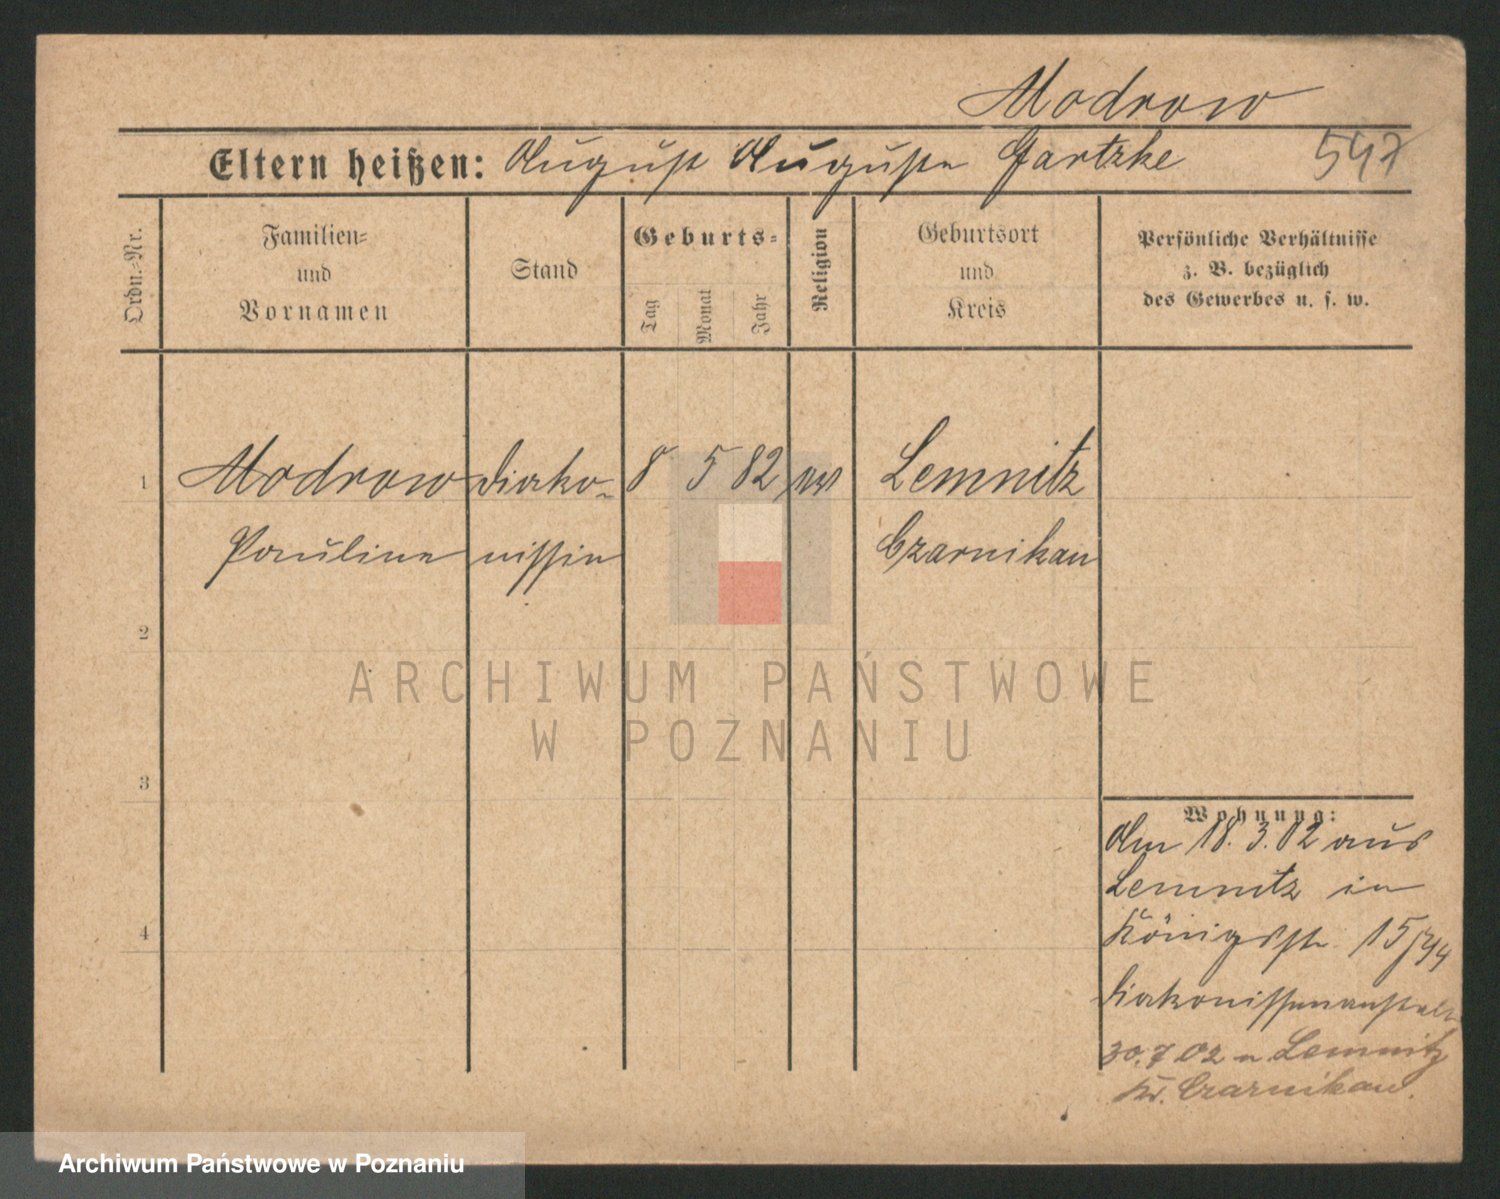 Modrow
Eltern heißen: August Auguste Gartzke 547
Ordn.-Nr.
Familien-
und
Vornamen
Stand
Geburts-
Tag
Monat
Jahr
Religion
Geburtsort
und
Kreis
Persönliche Verhältnisse
z. B. bezüglich
des Gewerbes u. s. w.
1 Modrow Diako- 8 5 82 ev Lemnitz
Pauline nissin Czarnikau
2
3
4
Wohnung:
Am 18.3.02 aus
Lemnitz in
Königsstr. 15/44
Diakonissenanstalt
30.7 02 n Lemnitz
Kr. Czarnikau.
ARCHIWUM PAŃSTWOWE
W POZNANIU
Archiwum Państwowe w Poznaniu